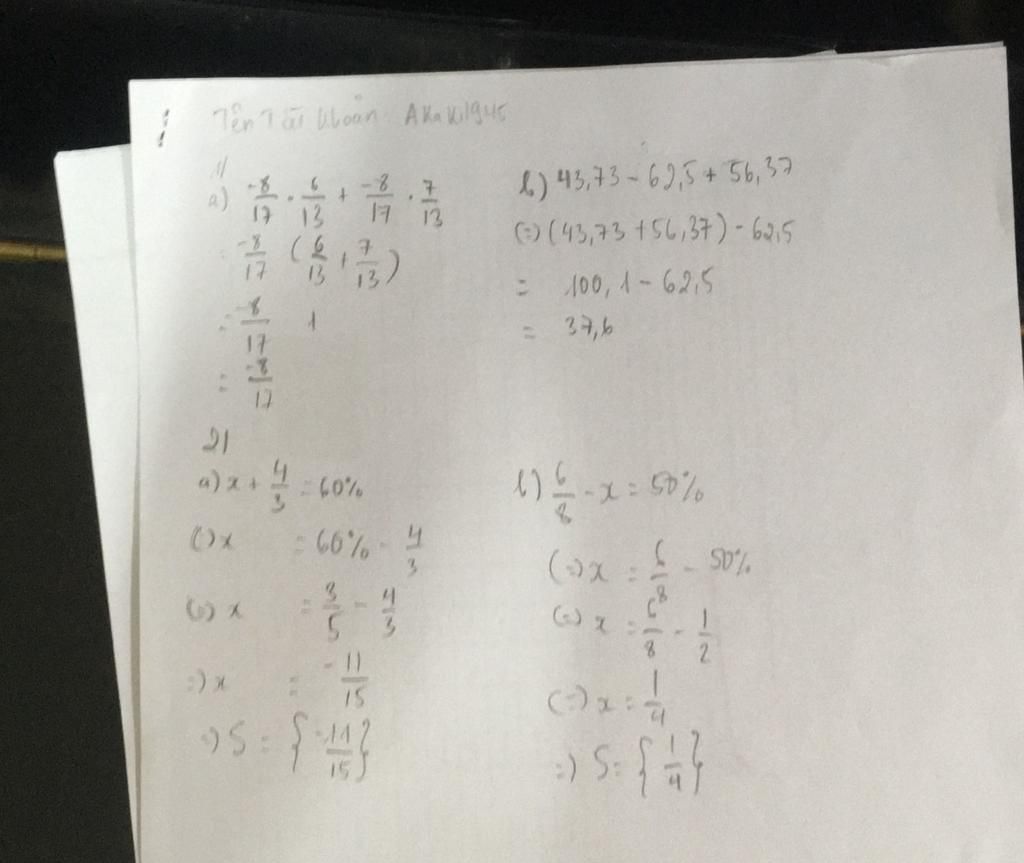 Tên Tài Khoản: AKaKi1945
1/
a) -8/17 . 6/13 + -8/17 . 7/13
= -8/17 (6/13 + 7/13)
= -8/17 1
= -8/17
b) 43,73 - 62,5 + 56,37
(=) (43,73 + 56,37) - 62,5
= 100,1 - 62,5
= 37,6
2/
a) x + 4/3 = 60%
(=) x = 60% - 4/3
(=) x = 3/5 - 4/3
=) x = -11/15
=) S = {-11/15}
b) 6/8 - x = 50%
(=) x = 6/8 - 50%
(=) x = 6/8 - 1/2
(=) x = 1/4
=) S = {1/4}